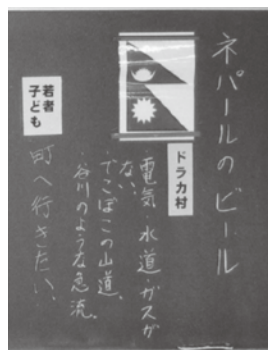 ネパールのビール
ドラカ村
・電気・水道・ガスが
ない。
・でこぼこの山道。
・谷川のような急流。
若者
子ども
町へ行きたい。